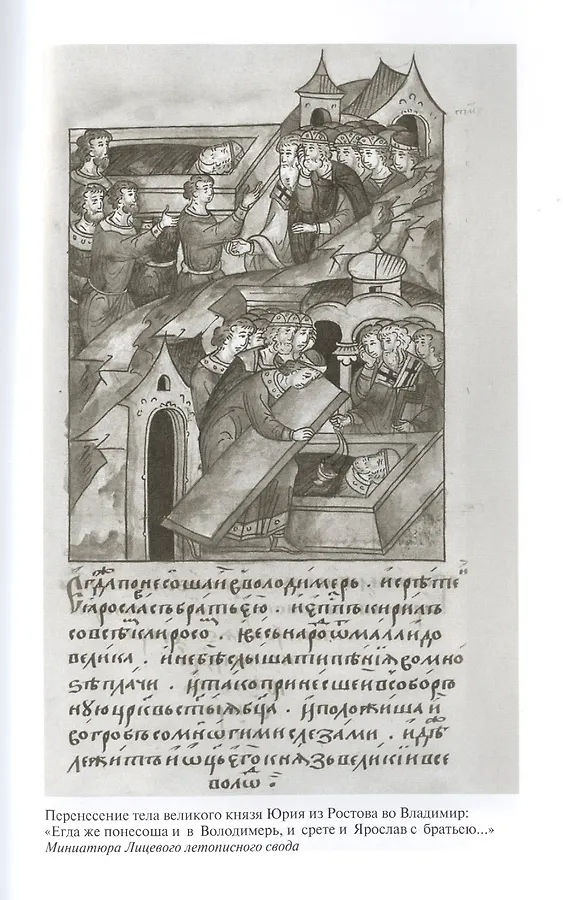 Егда понесоша и въ володимерь . и срѣте и
Ꙗрославъ съ братьею . и еп҃пъ кирилъ
со всѣ клиросо . и весь наро ѿ мала и до
велика . и не бѣ слышати пѣнїѧ во мно
зѣ плачи . и тако принесше и в соборъ
ную цр҃квь ст҃ыѧ бц҃а . и положиша и
во гробъ со многими слезами . идѣ
лежитъ и ѿц҃ь его кнѧзь великїи все
волѡ
Перенесение тела великого князя Юрия из Ростова во Владимир:
«Егда же понесоша и в Володимерь, и срете и Ярослав с братьею...»
Миниатюра Лицевого летописного свода